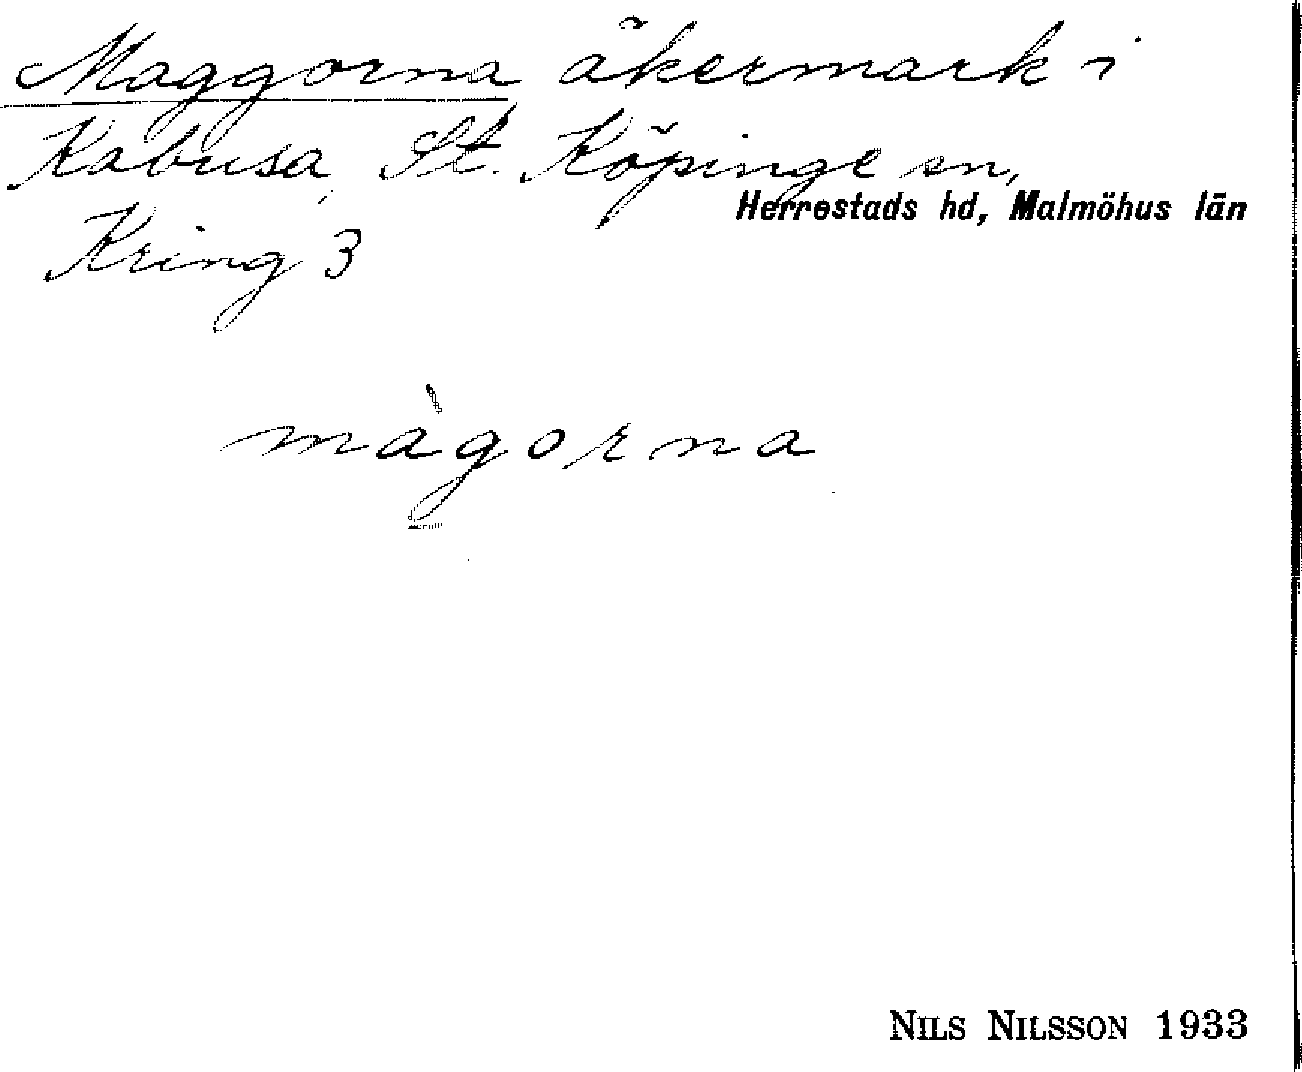 Maggorna åkermark i
Kabusa, St. Köpinge sn,
Herrestads hd, Malmöhus län
Kring 3
màgorna
NILS NILSSON 1933